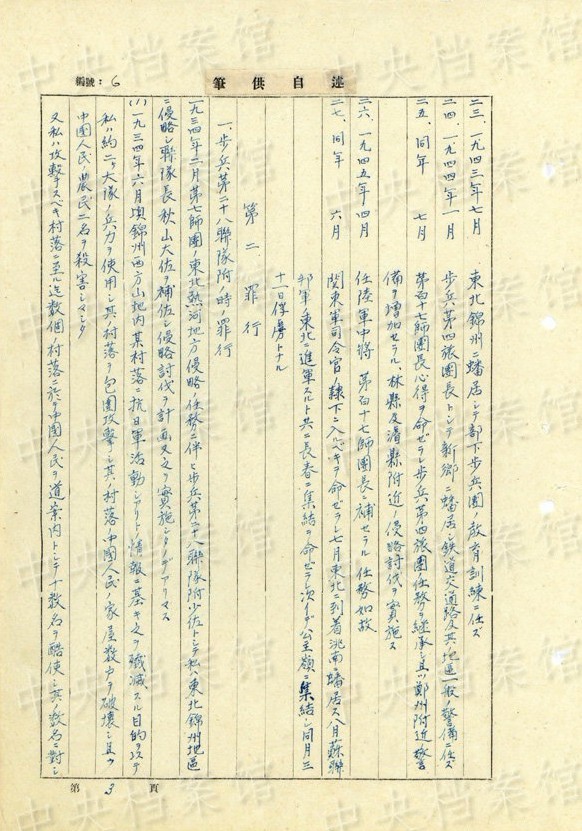 編號：6
述自供筆
二三、一九四三年七月 東北錦州ニ蟠居シテ部下歩兵團ノ教育訓練ニ任ズ
二四、一九四四年一月 歩兵第四旅團長トシテ新郷ニ蟠居シ鉄道交通路及其地區一般ノ警備ニ任ズ
二五、同年 七月 第百十七師團長心得ヲ命ゼラレ歩兵第四旅團任務ヲ継承シ且ツ鄭州附近警
備ヲ増加セラル、林縣及濬縣附近ノ侵略討伐ヲ實施ス
二六、一九四五年四月 任陸軍中將 第百十七師團長ニ補セラル 任務如故
二七、同年 六月 関東軍司令官ノ隷下ニ入ルベキヲ命ゼラレ七月東北ニ到着洮南ニ蟠居ス八月蘇聯
邦軍ノ東北ニ進軍スルト共ニ長春ニ集結ヲ命ゼラレ次イデ公主嶺ニ集結シ同月三
十一日俘虜トナル
第二 罪行
一、歩兵第二十八聯隊附ノ時ノ罪行
一九三四年二月第七師團ノ東北熱河地方侵略ノ任務ニ伴ヒ歩兵第二十八聯隊附少佐トシテ私ハ東北錦州地區
ニ侵略シ聯隊長秋山大佐ヲ補佐シ侵略討伐ヲ計画又之ヲ實施シタノデアリマス
(1)一九三四年六月頃錦州西方山地内某村落ニ抗日軍活動シアリトノ情報ニ基キ之ヲ殲滅スル目的ヲ以テ
私ハ約二ケ大隊ノ兵力ヲ使用シ其ノ村落ヲ包圍攻撃シ其ノ村落ノ中國人民ノ家屋数戸ヲ破壊シ且ツ
中國人民、農民二名ヲ殺害シマシタ
又私ハ攻撃スベキ村落ニ至ル迄数個ノ村落ニ於テ中國人民ヲ道案内トシテ十数名ヲ酷使シ其ノ数名ニ對シ
第3頁
中央档案馆